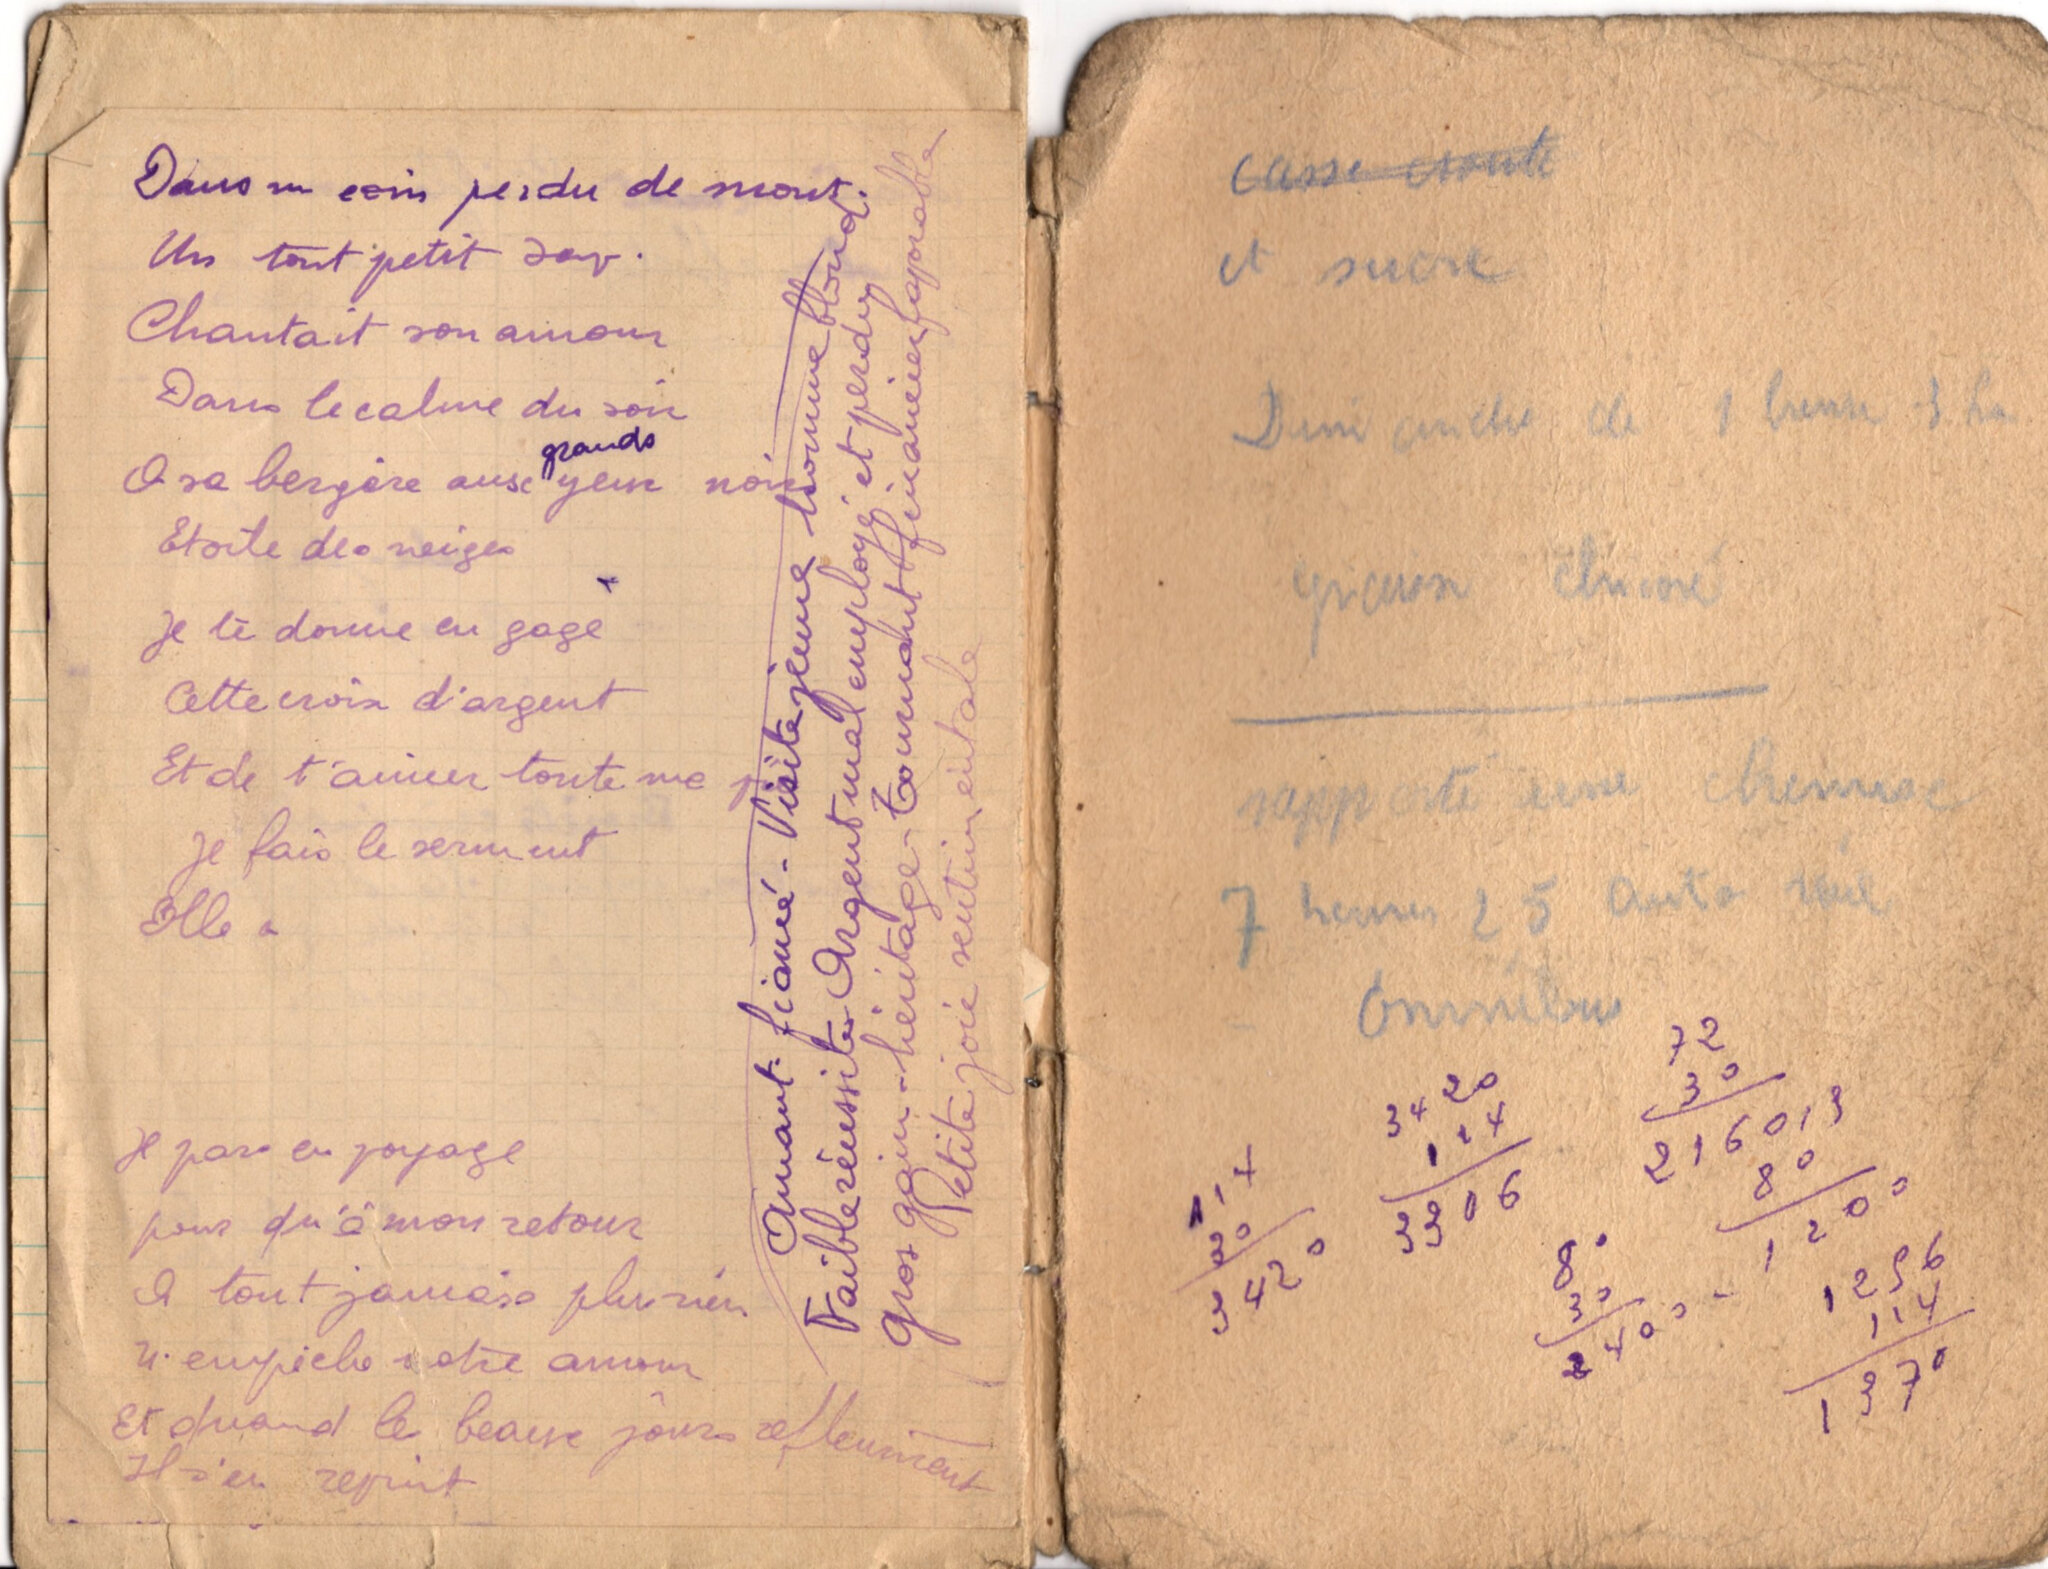 Dans un coin perdu de mont.
Un tout petit sav.
Chantait son amour
Dans le calme du soir
A sa bergère aux "grands yeux noirs
Etoile des neiges
Je te donne en gage
Cette croix d'argent
Et de t'aimer toute ma
Je fais le serment
Elle a
Je pars en voyage
pour qu'à mon retour
A tout jamais plus rien
N'empêche notre amour
Et quand les beaux jours refleurirent
Il s'en revint
Amant. fiancé - Visite jeune homme blond.
Faible réussite Argent mal employé et perdu
gros gain - héritage - Tournant financier favorable
Petite joie sentimentale
casse croute
et sucre
Dimanche de 1 heure
chicoré
rapporté une chemise
7 heures 25 Auto rail
Omnibus
72
30
216013
80
1200
3420
114
3306
117
30
3420
80
30
2400 -
1256
114
1370